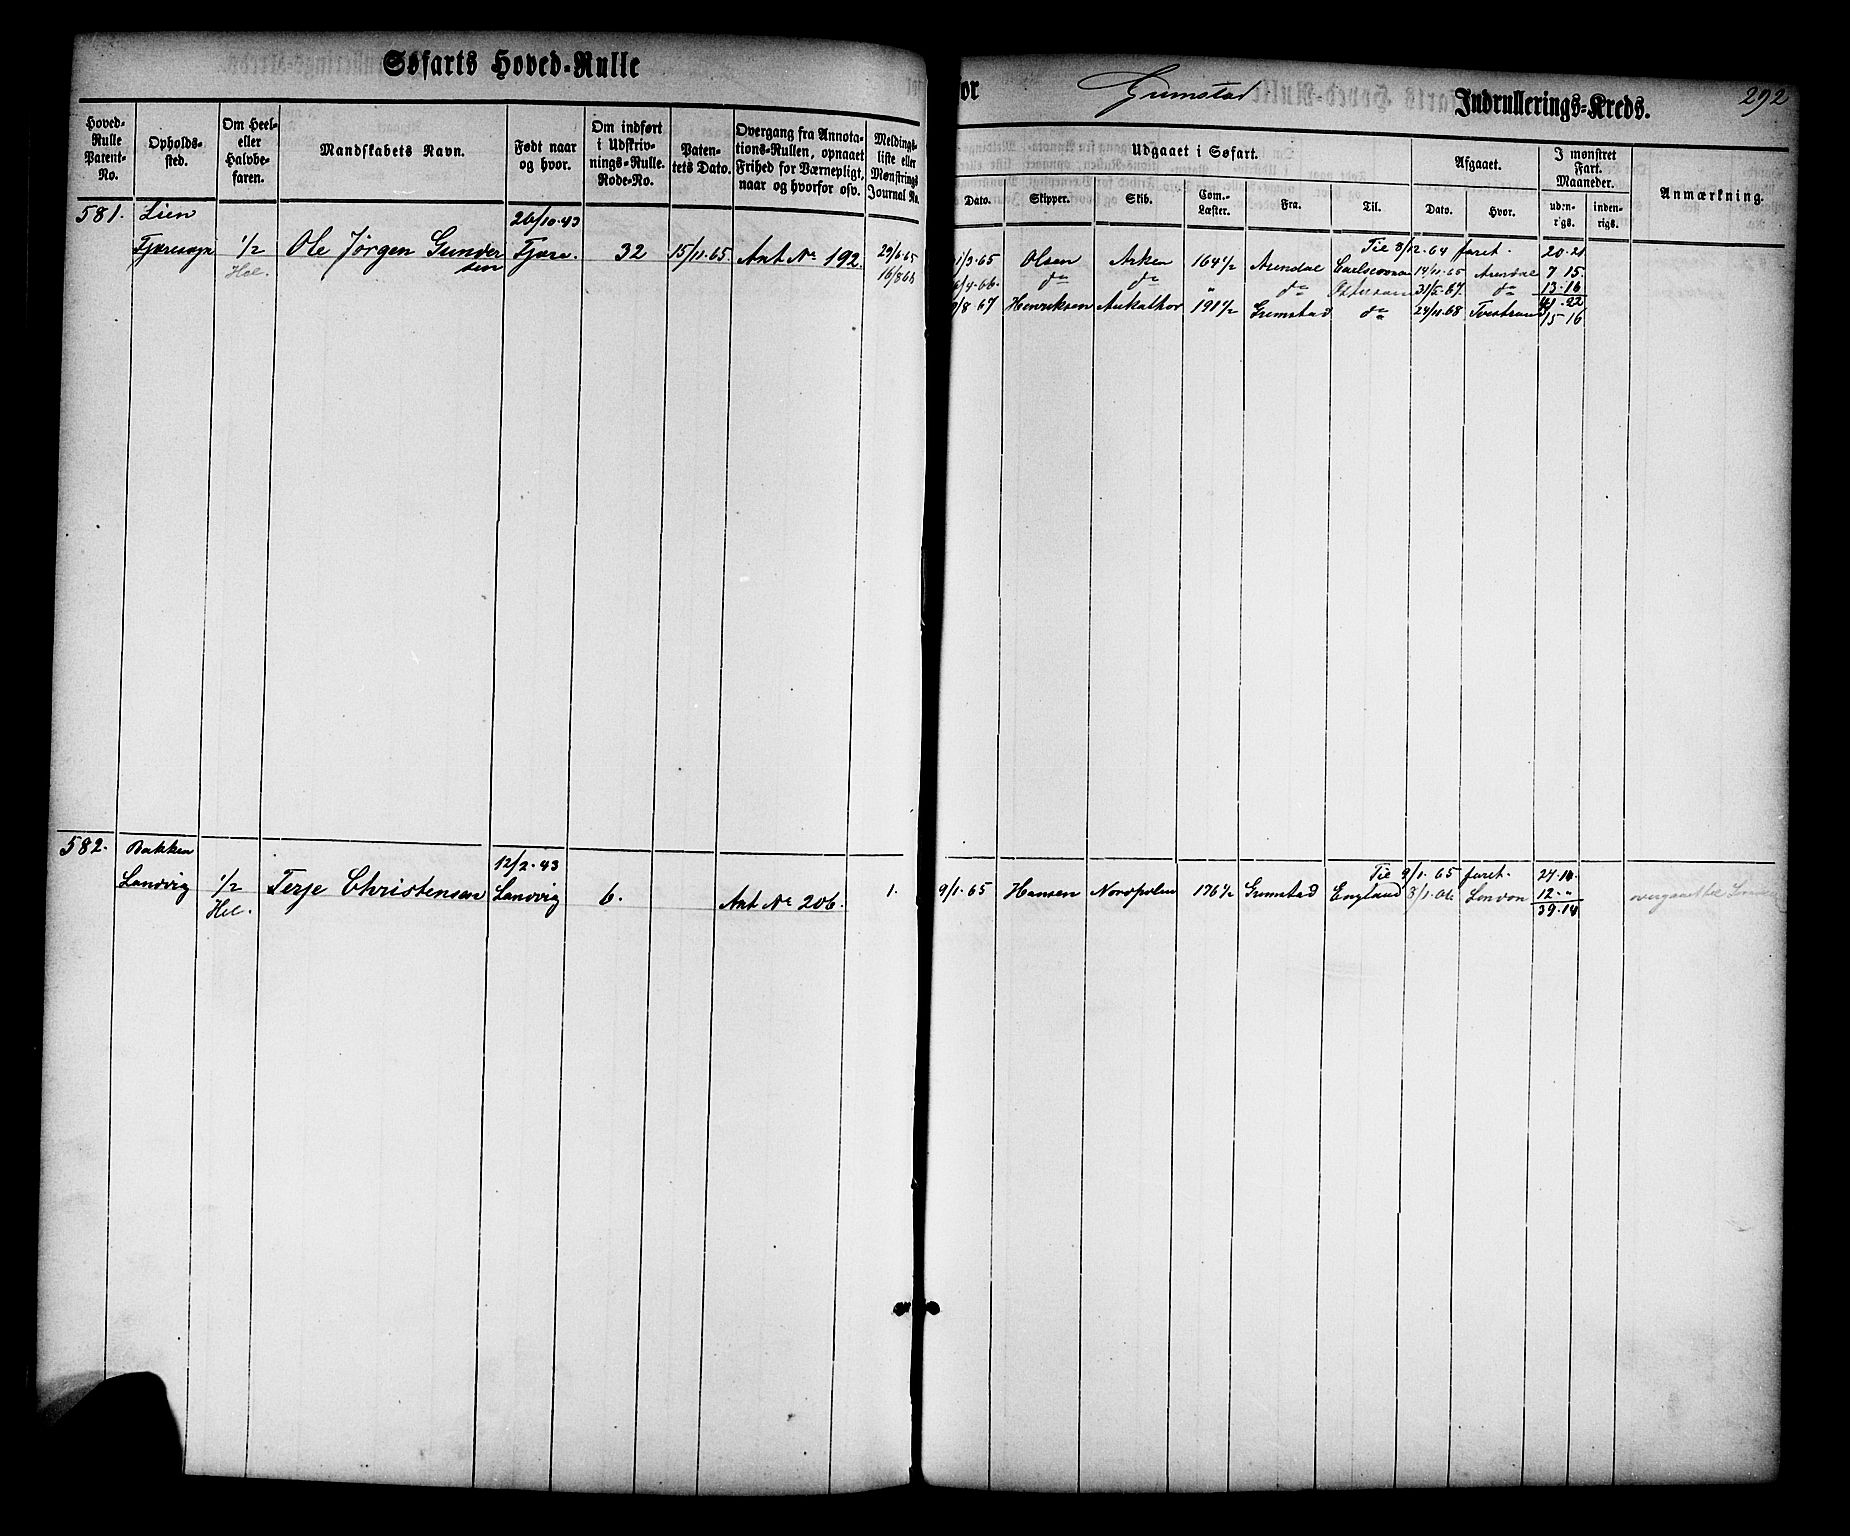 Søfarts Hoved-Rulle
for Grimstad Indrullerings-Kreds. 292
Hoved-Rulle Patent-No.
Opholds-sted.
Om Heel- eller Halvbe-faren.
Mandskabets Navn.
Født naar og hvor.
Om indført i Udskriv-nings-Rulle. Rode-No.
Paten-tets Dato.
Overgang fra Annota-tions-Rullen, opnaaet Frihed for Værnepligt, naar og hvorfor osv.
Meldings-liste eller Mønstrings Journal No.
Udgaaet i Søfart.
Dato. Skipper. Skib. Com.-Læster. Fra. Til.
Afgaaet.
Dato. Hvor.
I mønstret Fart. Maaneder.
uden-rigs. inden-rigs.
Anmærkning.
581. Lien 26/10.43
Fjæresogn 1/2 Ole Jørgen Gunder Fjære. 32 15/11.65. Ant No 192. 29/6 65
Hel. sen 16/8 68
Til 8/12.64 faret. 20.21
1/3.65 Olsen Arken 164 1/2 Arendal 14/11.65 Arendal 7 15
6/4.66. do do " do 31/5.67 do 13.16
9/8.67 Henriksen 191 1/2 Grimstad do 24/11.68 Tvestrand 41.22
15-16
582. Bakken 12/2.43 Til 9/1.65 faret. 27.14
Landvig 1/2 Terje Christensen Landvig 6. Ant No 206. 1. 9/1.65 Hansen Nordpolen 176 1/2 Grimstad England 8/1.66 London 12."
Hel. 39.14
overgaaet til